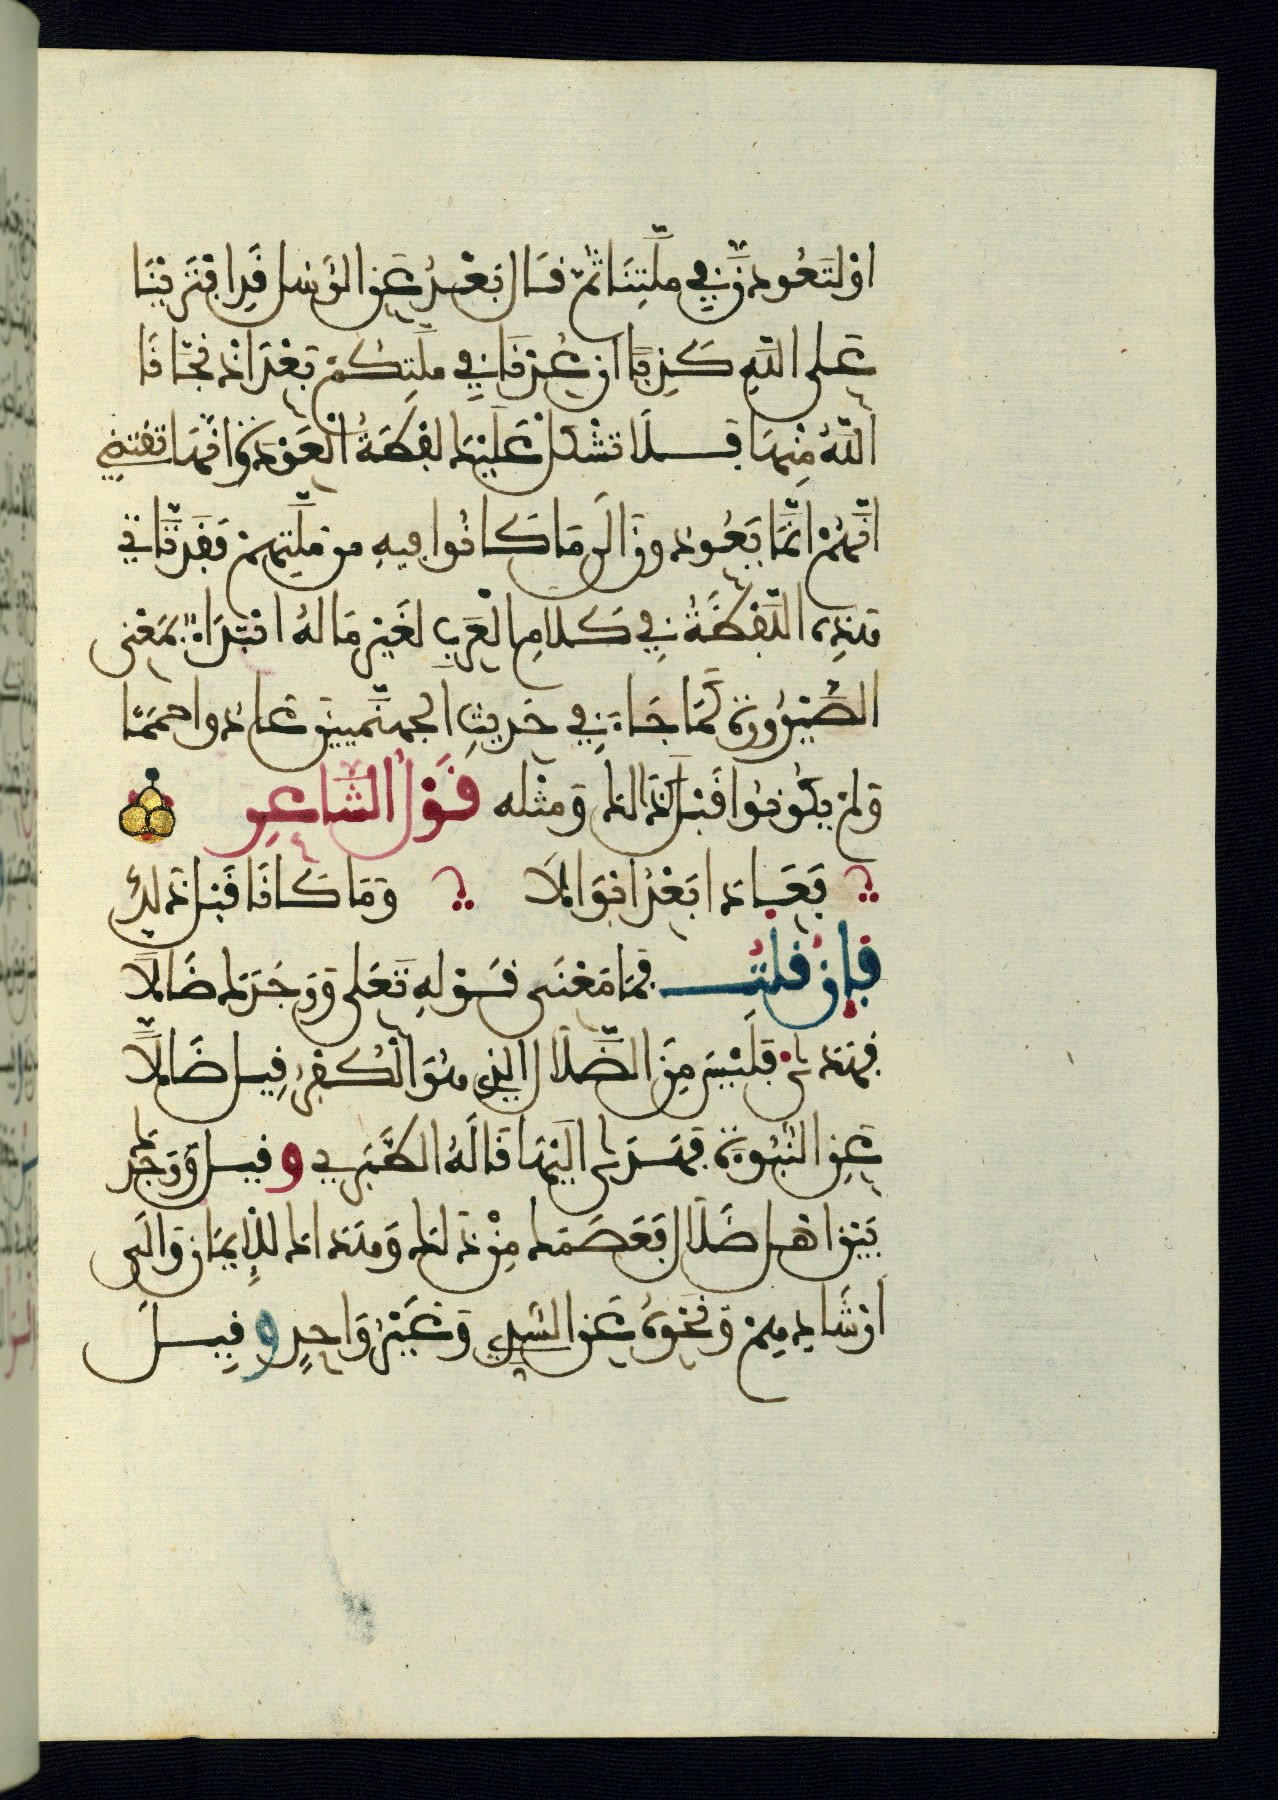 او لتعودن في ملتنا ثم قال بعد عن الرسل قد افترينا
على الله كذبا ان عدنا في ملتكم بعد اذ نجانا
الله منها فلا تشكل عليك لفظة العود وانها تقتضي
انهم انما يعودون الى ما كانوا فيه من ملتهم فقد تاتي
هذه اللفظة في كلام العرب لغير ما له ابتداء بمعنى
الصيرورة كما جاء في حديث الجهنميين عادوا حمما
ولم يكونوا قبل كذلك ومثله قول الشاعر
فعادا بعد ابوالا وما كانا قبل كذلك
فإن قلت فما معنى قوله تعلى ووجدك ضالا
فهدى فليس من الضلال الذي هو الكفر قيل ضالا
عن النبوة فهداك اليها قاله الطبري وقيل ووجدك
بين اهل ضلال فعصمك من ذلك وهداك للإيمان والى
ارشادهم ونحوه عن السدي وغير واحد وقيل